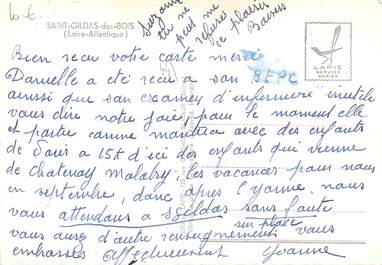 10-6
SAINT-GILDAS-des-BOIS
(Loire-Atlantique)
Suzanne
tu ne
peut me
refuser
ce plaisir
Baisers
LAPIE
SERVICE
SERIES
Bien recu votre carte merci
Danielle a eté recu a son BEPC
ainsi que son examen d'infermiere inutile
vous dire notre joie, pour le moment elle
est partie comme monitrice avec des enfants
de Paris a 15K d'ici des enfants qui vienne
de Chatenay Malabry, les vacances pour nous
en septembre, donc apres l'Yonne. nous
vous attendons a St Gildas sans faute
sur place
vous aurez d'autre renseignement vous
embrasses affectueusement Yvonne